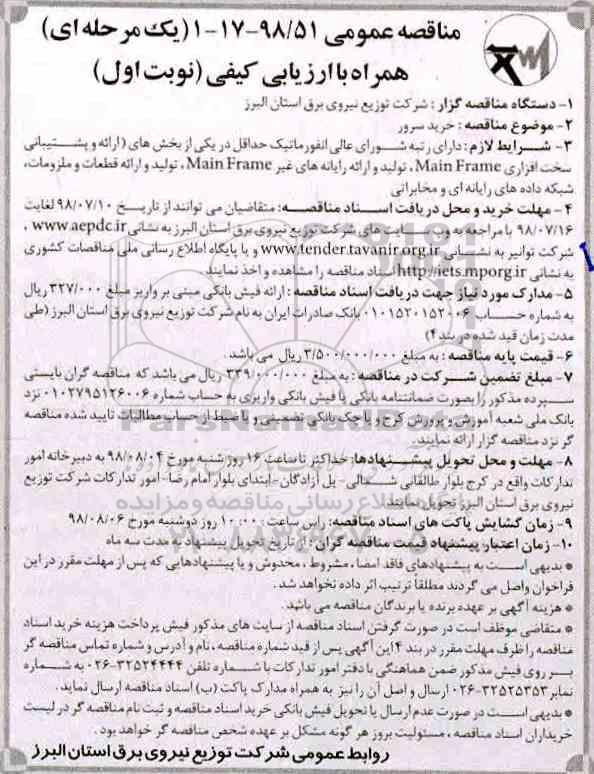 مناقصه عمومی ۹۸/۵۱-۱۷-۱ (یک مرحله ای)
همراه با ارزیابی کیفی (نوبت اول)
۱- دستگاه مناقصه گزار : شرکت توزیع نیروی برق استان البرز
۲- موضوع مناقصه : خرید سرور
۳- شرایط لازم : دارای رتبه شورای عالی انفورماتیک حداقل در یکی از بخش های (ارائه و پشتیبانی
سخت افزاری Main Frame ، تولید و ارائه رایانه های غیر Main Frame ، تولید و ارائه قطعات و ملزومات،
شبکه داده های رایانه ای و مخابراتی
۴- مهلت خرید و محل دریافت اسناد مناقصه : متقاضیان می توانند از تاریخ ۹۸/۰۷/۱۰ لغایت
۹۸/۰۷/۱۶ با مراجعه به وب سایت های شرکت توزیع نیروی برق استان البرز به نشانی www.aepdc.ir ،
شرکت توانیر به نشانی www.tender.tavanir.org.ir و یا پایگاه اطلاع رسانی ملی مناقصات کشوری
به نشانی http://iets.mporg.ir اسناد مناقصه را مشاهده و اخذ نمایند.
۵- مدارک مورد نیاز جهت دریافت اسناد مناقصه : ارائه فیش بانکی مبنی بر واریز مبلغ ۳۲۷/۰۰۰ ریال
به شماره حساب ۰۱۰۱۵۲۰۱۵۲۰۰۶ بانک صادرات ایران به نام شرکت توزیع نیروی برق استان البرز (طی
مدت زمان قید شده در بند ۴)
۶- قیمت پایه مناقصه : به مبلغ ۳/۵۰۰/۰۰۰/۰۰۰ ریال می باشد.
۷- مبلغ تضمین شرکت در مناقصه : به مبلغ ۳۳۹/۰۰۰/۰۰۰ ریال می باشد که مناقصه گران بایستی
سپرده مذکور را بصورت ضمانتنامه بانکی یا فیش بانکی واریزی به حساب شماره ۰۱۰۲۷۹۵۱۲۶۰۰۶ نزد
بانک ملی شعبه آموزش و پرورش کرج و یا چک بانکی تضمینی و یا ضبط از حساب مطالبات تایید شده مناقصه
گر نزد مناقصه گزار ارائه نمایند.
۸- مهلت و محل تحویل پیشنهادها: حداکثر تا ساعت ۱۶ روز شنبه مورخ ۹۸/۰۸/۰۴ به دبیرخانه امور
تدارکات واقع در کرج بلوار طالقانی شمالی- پل آزادگان- ابتدای بلوار امام رضا- امور تدارکات شرکت توزیع
نیروی برق استان البرز تحویل نمایند.
۹- زمان گشایش پاکت های اسناد مناقصه : راس ساعت ۱۰:۰۰ روز دوشنبه مورخ ۹۸/۰۸/۰۶
۱۰- زمان اعتبار پیشنهاد قیمت مناقصه گران : از تاریخ تحویل پیشنهاد به مدت سه ماه
* بدیهی است به پیشنهادهای فاقد امضا ، مشروط ، مخدوش و یا پیشنهادهایی که پس از مهلت مقرر در این
فراخوان واصل می گردند مطلقاً ترتیب اثر داده نخواهد شد.
* هزینه آگهی بر عهده برنده یا برندگان مناقصه می باشد.
* متقاضی موظف است در صورت گرفتن اسناد مناقصه از سایت های مذکور فیش پرداخت هزینه خرید اسناد
مناقصه را ظرف مهلت مقرر در بند ۴ این آگهی پس از قید شماره مناقصه ، نام و آدرس و شماره تماس مناقصه گر
بر روی فیش مذکور ضمن هماهنگی با دفتر امور تدارکات با شماره تلفن ۳۲۵۲۴۴۴۴-۰۲۶ به شماره
نمابر ۳۲۵۲۵۳۵۳-۰۲۶ ارسال و اصل آن را نیز به همراه مدارک پاکت (ب) اسناد مناقصه ارسال نماید.
* بدیهی است در صورت عدم ارسال یا تحویل فیش بانکی خرید اسناد مناقصه و ثبت نام مناقصه گر در لیست
خریداران اسناد مناقصه ، مسئولیت بروز هر گونه مشکل بر عهده شخص مناقصه گر خواهد بود.
روابط عمومی شرکت توزیع نیروی برق استان البرز
ParsNamadData